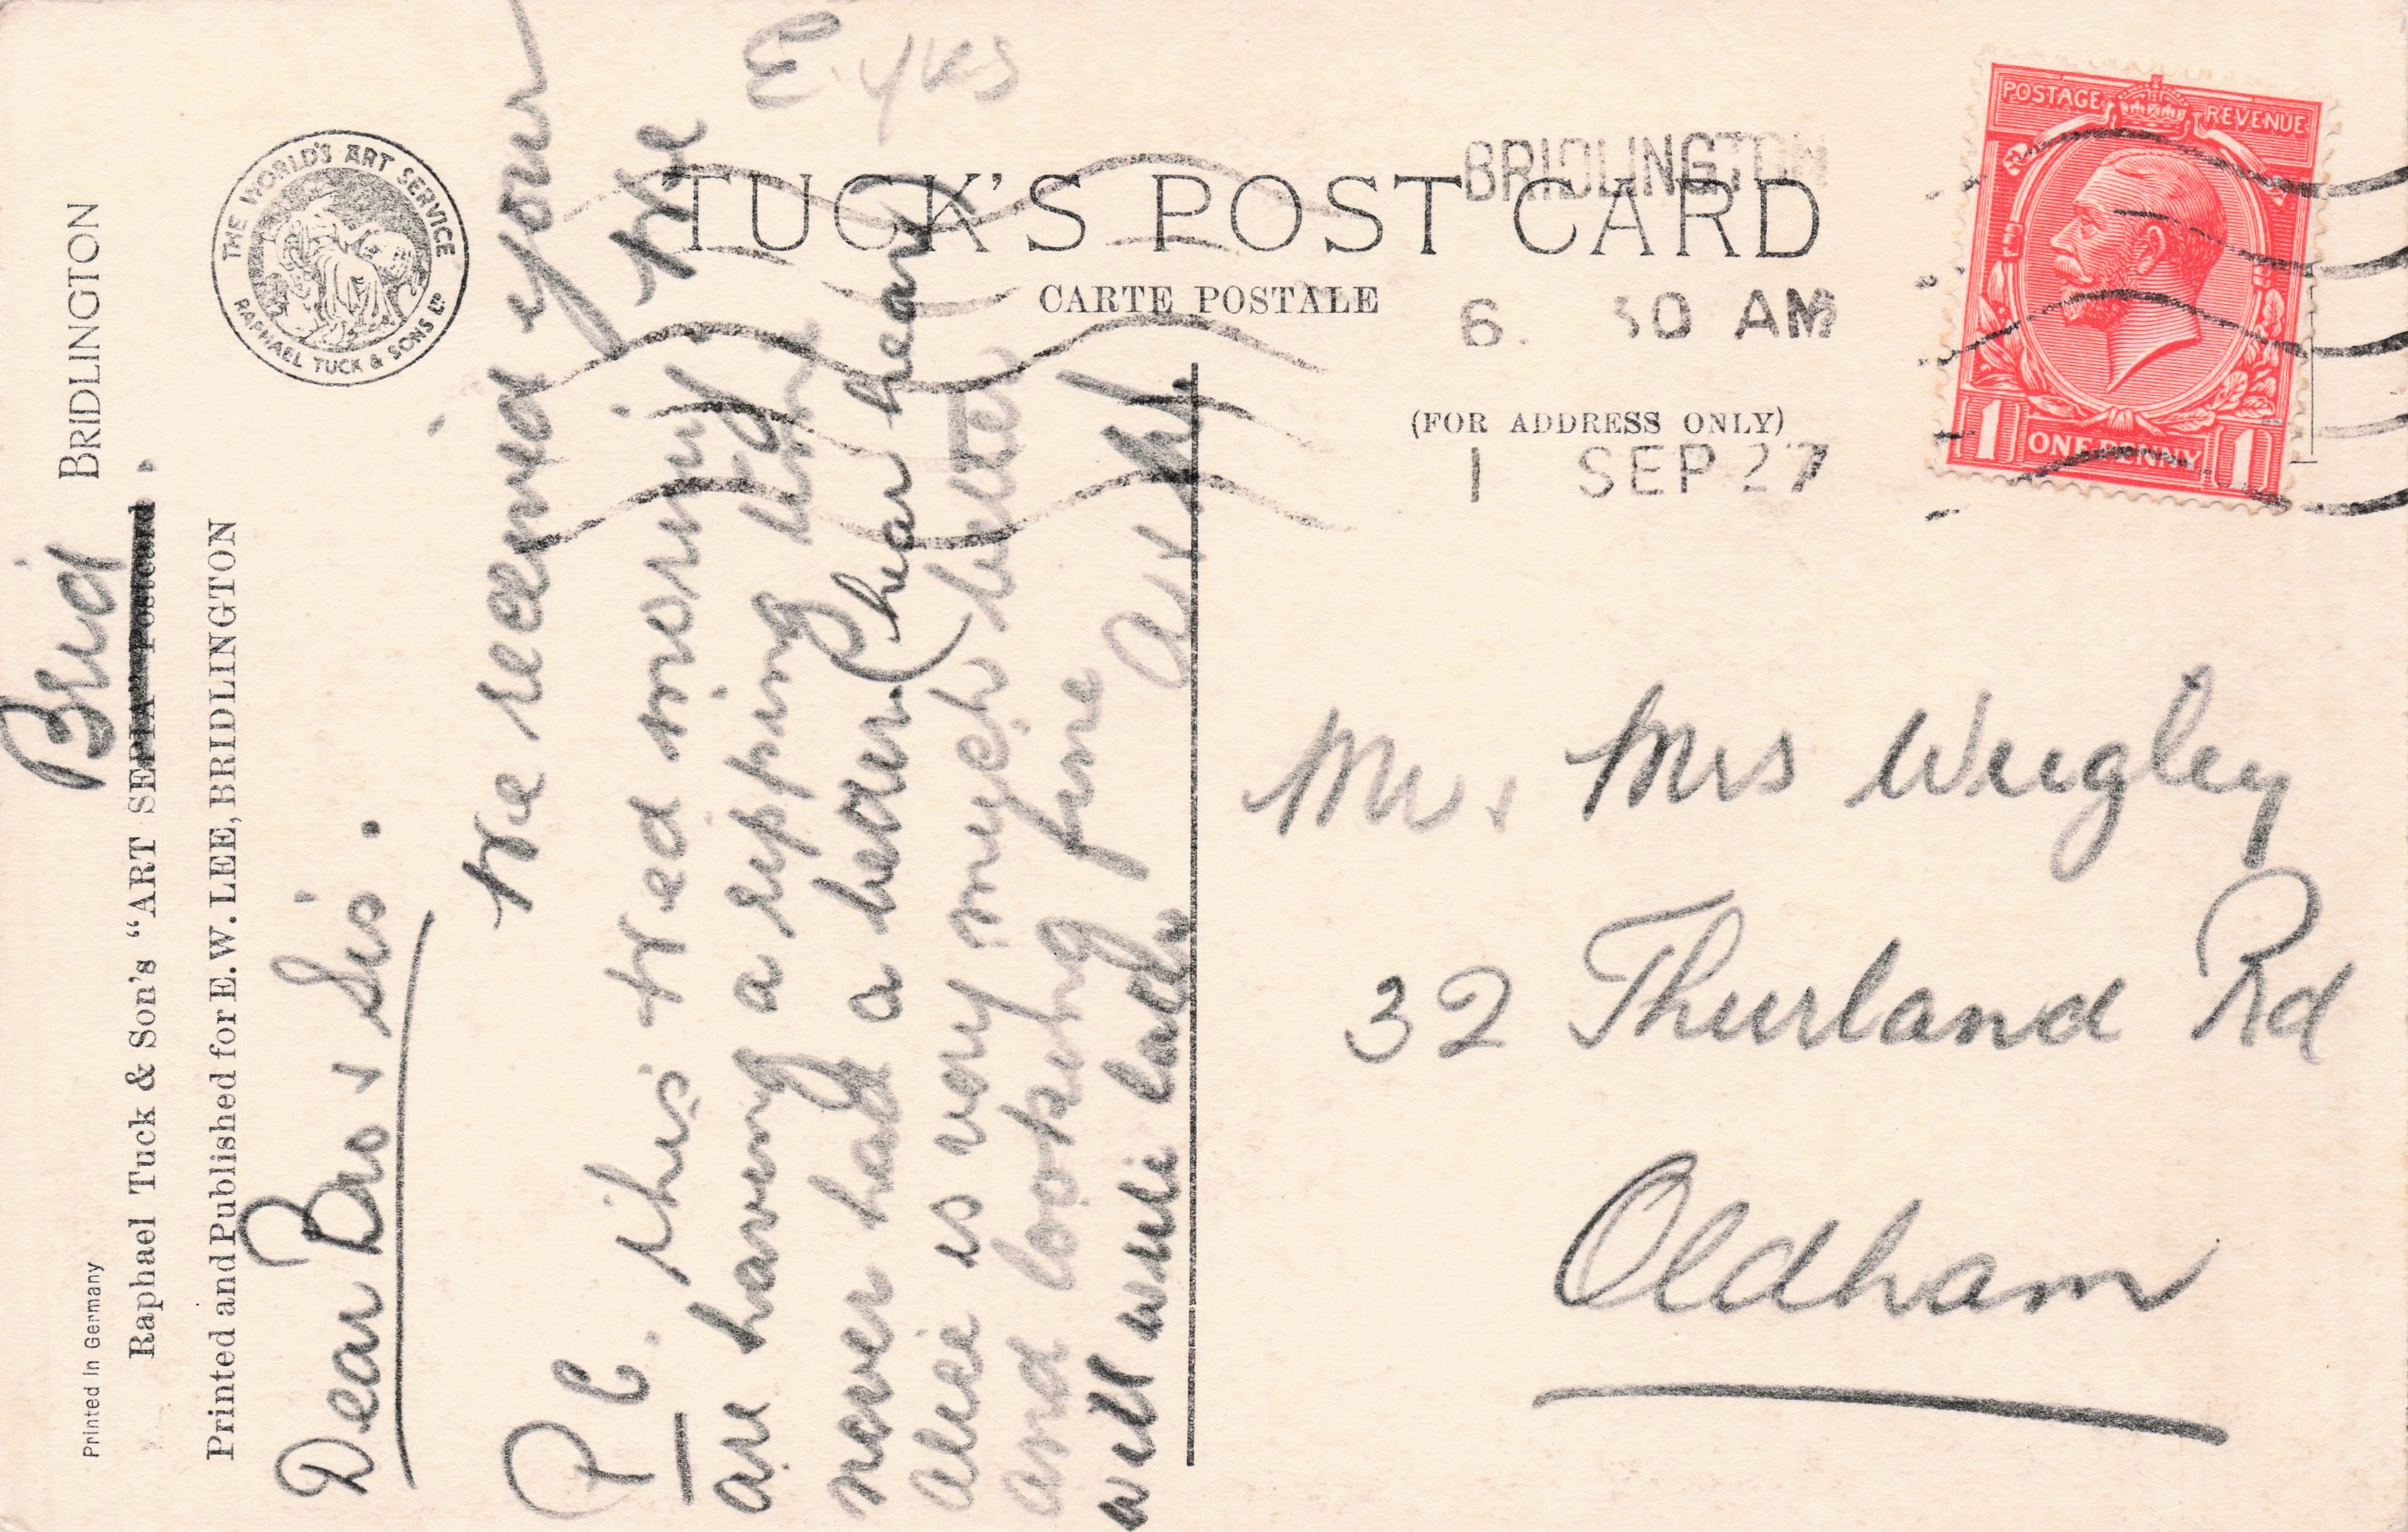 BRIDLINGTON
Brid.
Printed in Germany
Raphael Tuck & Son's "ART SEPIA" Postcard
Printed and Published for E.W. LEE, BRIDLINGTON
THE WORLD'S ART SERVICE
RAPHAEL TUCK & SONS LTD
Dear Bro & Sis.
We received your
P C. this Wed morning. We
are having a ripping time
never had a beano (hear hear)
alice is very much better
and looking fine
will write later
TUCK'S POST CARD
CARTE POSTALE
(FOR ADDRESS ONLY)
BRIDLINGTON
6. 30 AM
1 SEP 27
POSTAGE REVENUE
1 ONE PENNY 1
Mr & Mrs Wrigley
32 Thurland Rd
Oldham
E. Yks